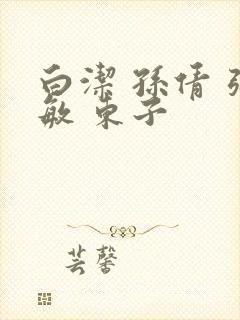 白潔 孫倩 張
敏 東子
芸馨